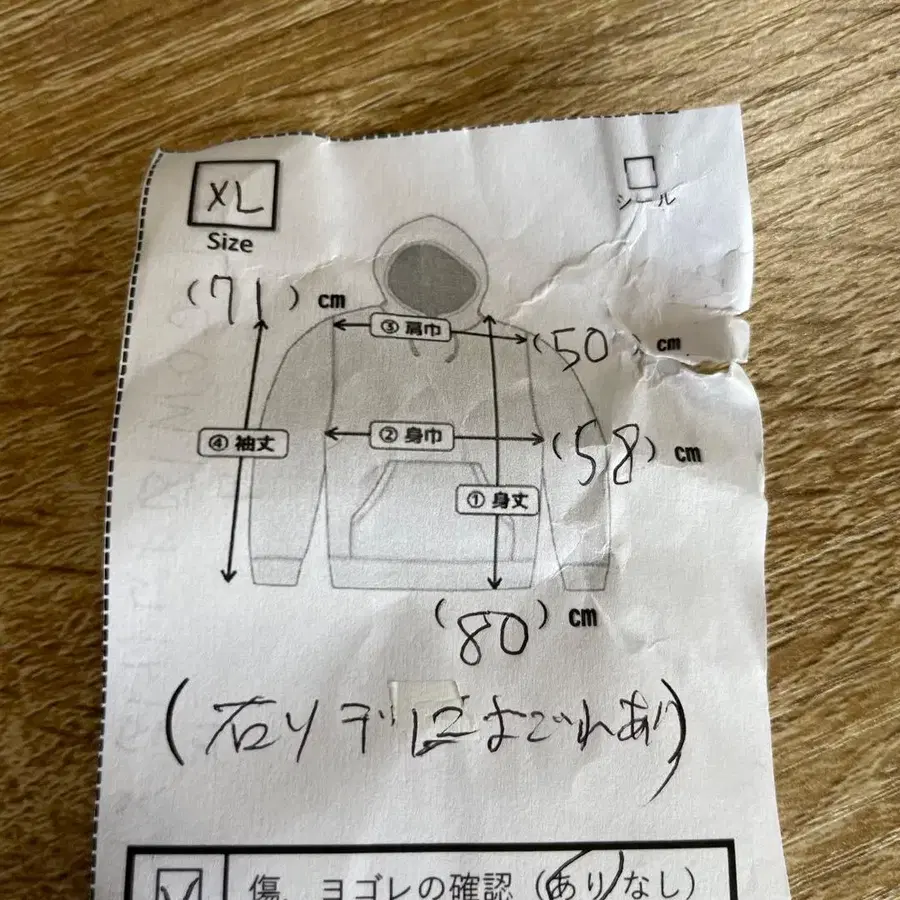 XL
シール
Size
(71) cm
③ 肩巾
(50) cm
④ 袖丈
② 身巾
(58) cm
① 身丈
(80) cm
(右ソデによごれあり)
傷、ヨゴレの確認 (あり/なし)